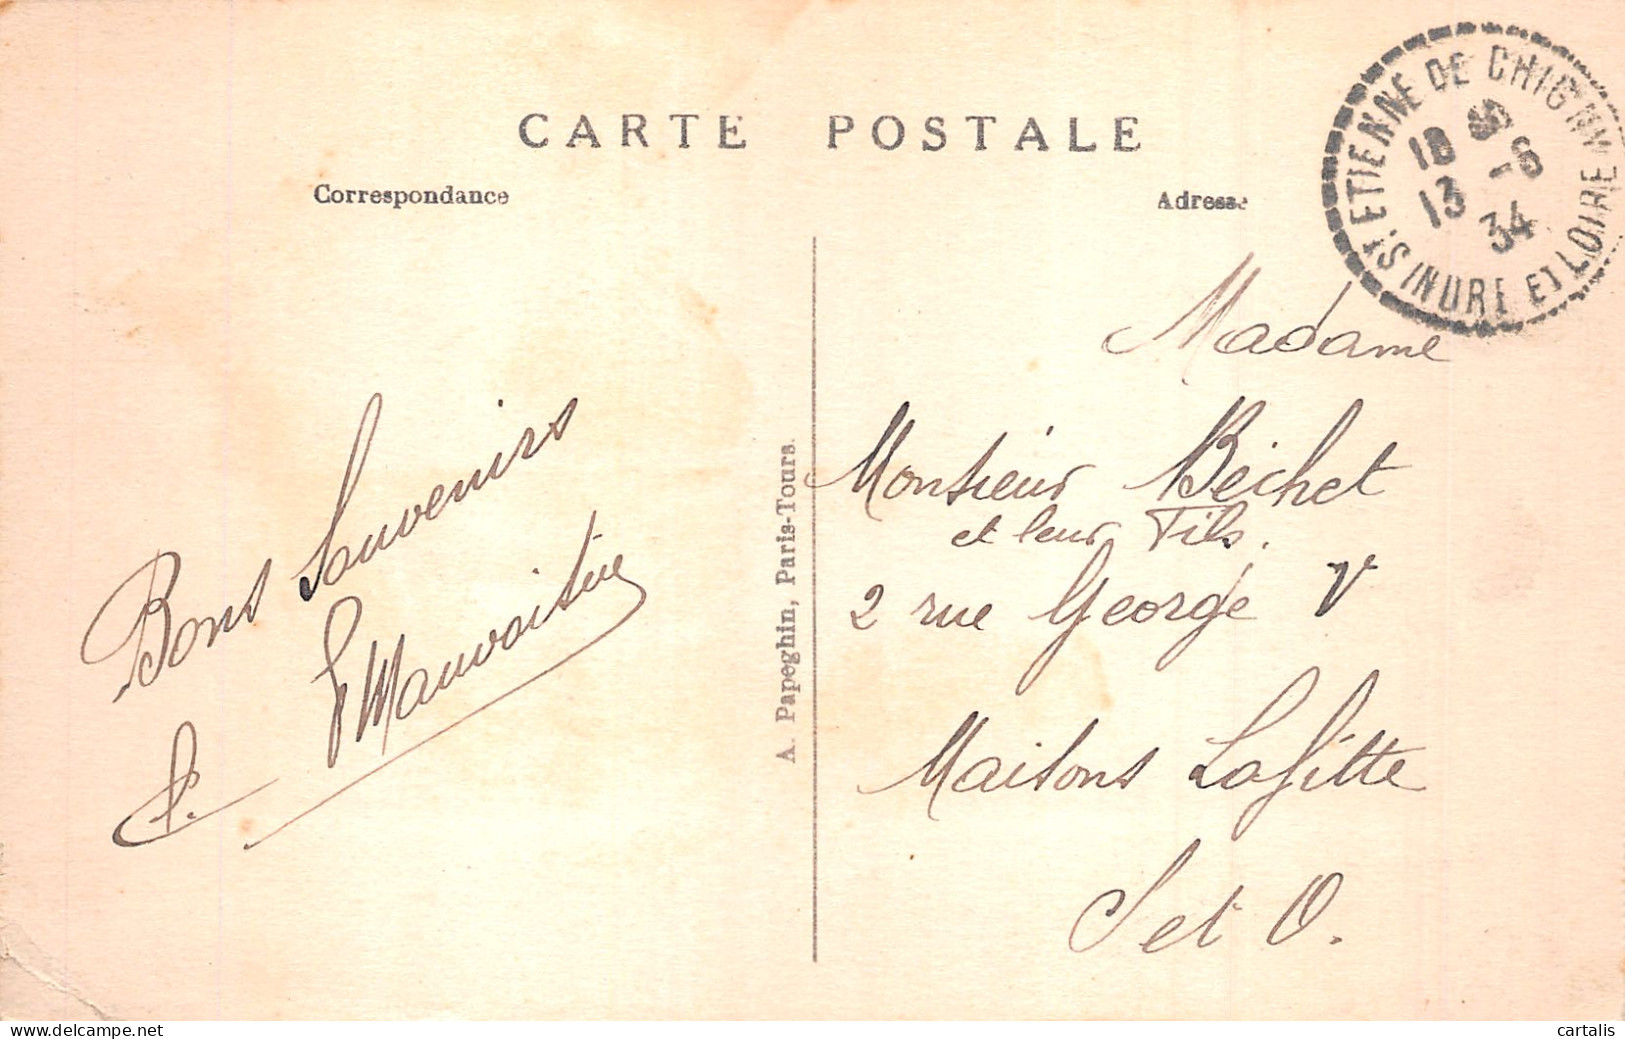 CARTE POSTALE
Correspondance
Adresse
ST ETIENNE DE CHIGNY
INDRE ET LOIRE
18
13 -8
34
Madame
Monsieur Béchet
et leur Fils.
2 rue George V
Maisons Lafitte
S et O.
Bons Souvenirs
A. Papeghin, Paris-Tours.
cartalis